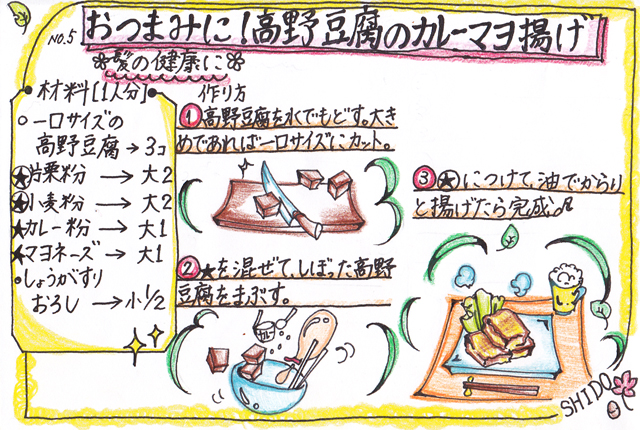 No.5 おつまみに!高野豆腐のカレーマヨ揚げ
❀髪の健康に❀
●材料[1人分]●
○一口サイズの
高野豆腐→3コ
★片栗粉→大2
★小麦粉→大2
★カレー粉→大1
★マヨネーズ→大1
•しょうがすり
おろし→小1/2
作り方
①高野豆腐を水でもどす。大き
めであれば一口サイズにカット。
②★を混ぜて、しぼった高野
豆腐をまぶす。
③★につけて、油でからり
と揚げたら完成♫
SHIDO